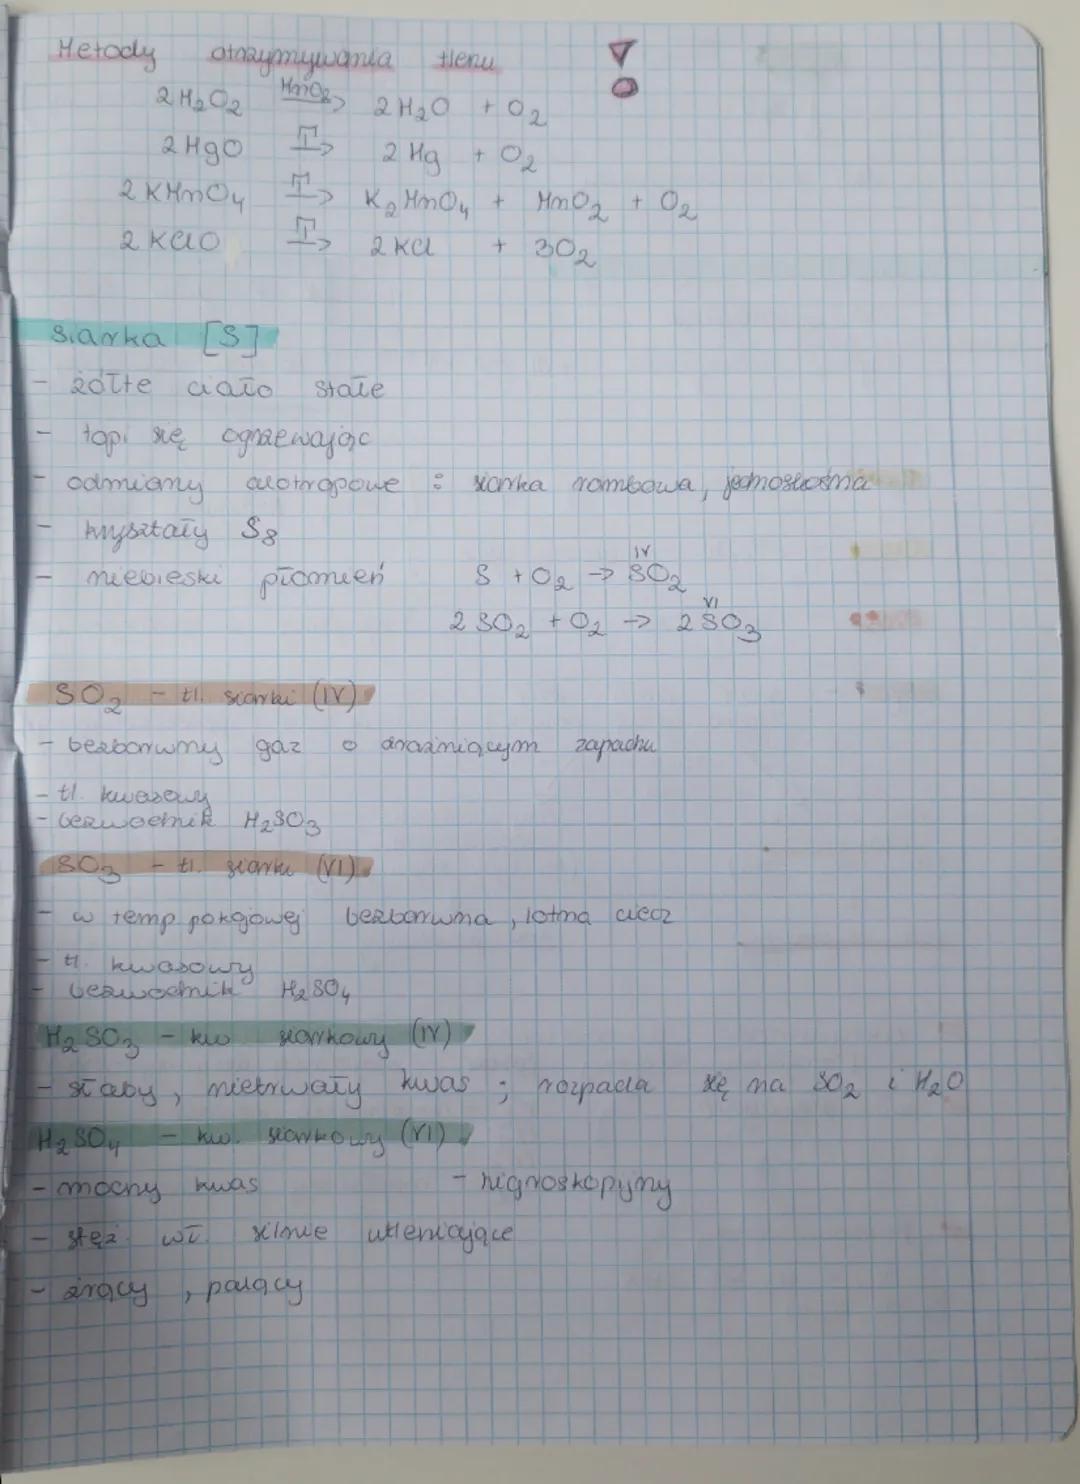 Metody otrzymywania tlenu
2H₂O₂ —MnO₂→ 2H₂O + O₂
2HgO —T→ 2Hg + O₂
2KMnO₄ —T→ K₂MnO₄ + MnO₂ + O₂
2KClO —T→ 2KCl + 3O₂
Siarka [S]
- żółte ciało stałe
- topi się ogrzewając
- odmiany alotropowe : siarka rombowa, jednoskośna
- kryształy S₈
- niebieski płomień S + O₂ → SO₂ IV
2SO₂ + O₂ → 2SO₃ VI
SO₂ - tl. siarki (IV)
- bezbarwny gaz o drażniącym zapachu
- tl. kwasowy
- bezwodnik H₂SO₃
SO₃ - tl. siarki (VI)
- w temp. pokojowej bezbarwna, lotna ciecz
- tl. kwasowy
- bezwodnik H₂SO₄
H₂SO₃ - kw siarkowy (IV)
- słaby, nietrwały kwas ; rozpada się na SO₂ i H₂O
H₂SO₄ - kw. siarkowy (VI)
- mocny kwas - higroskopijny
- stęż. wł. silnie utleniające
- żrący, palący